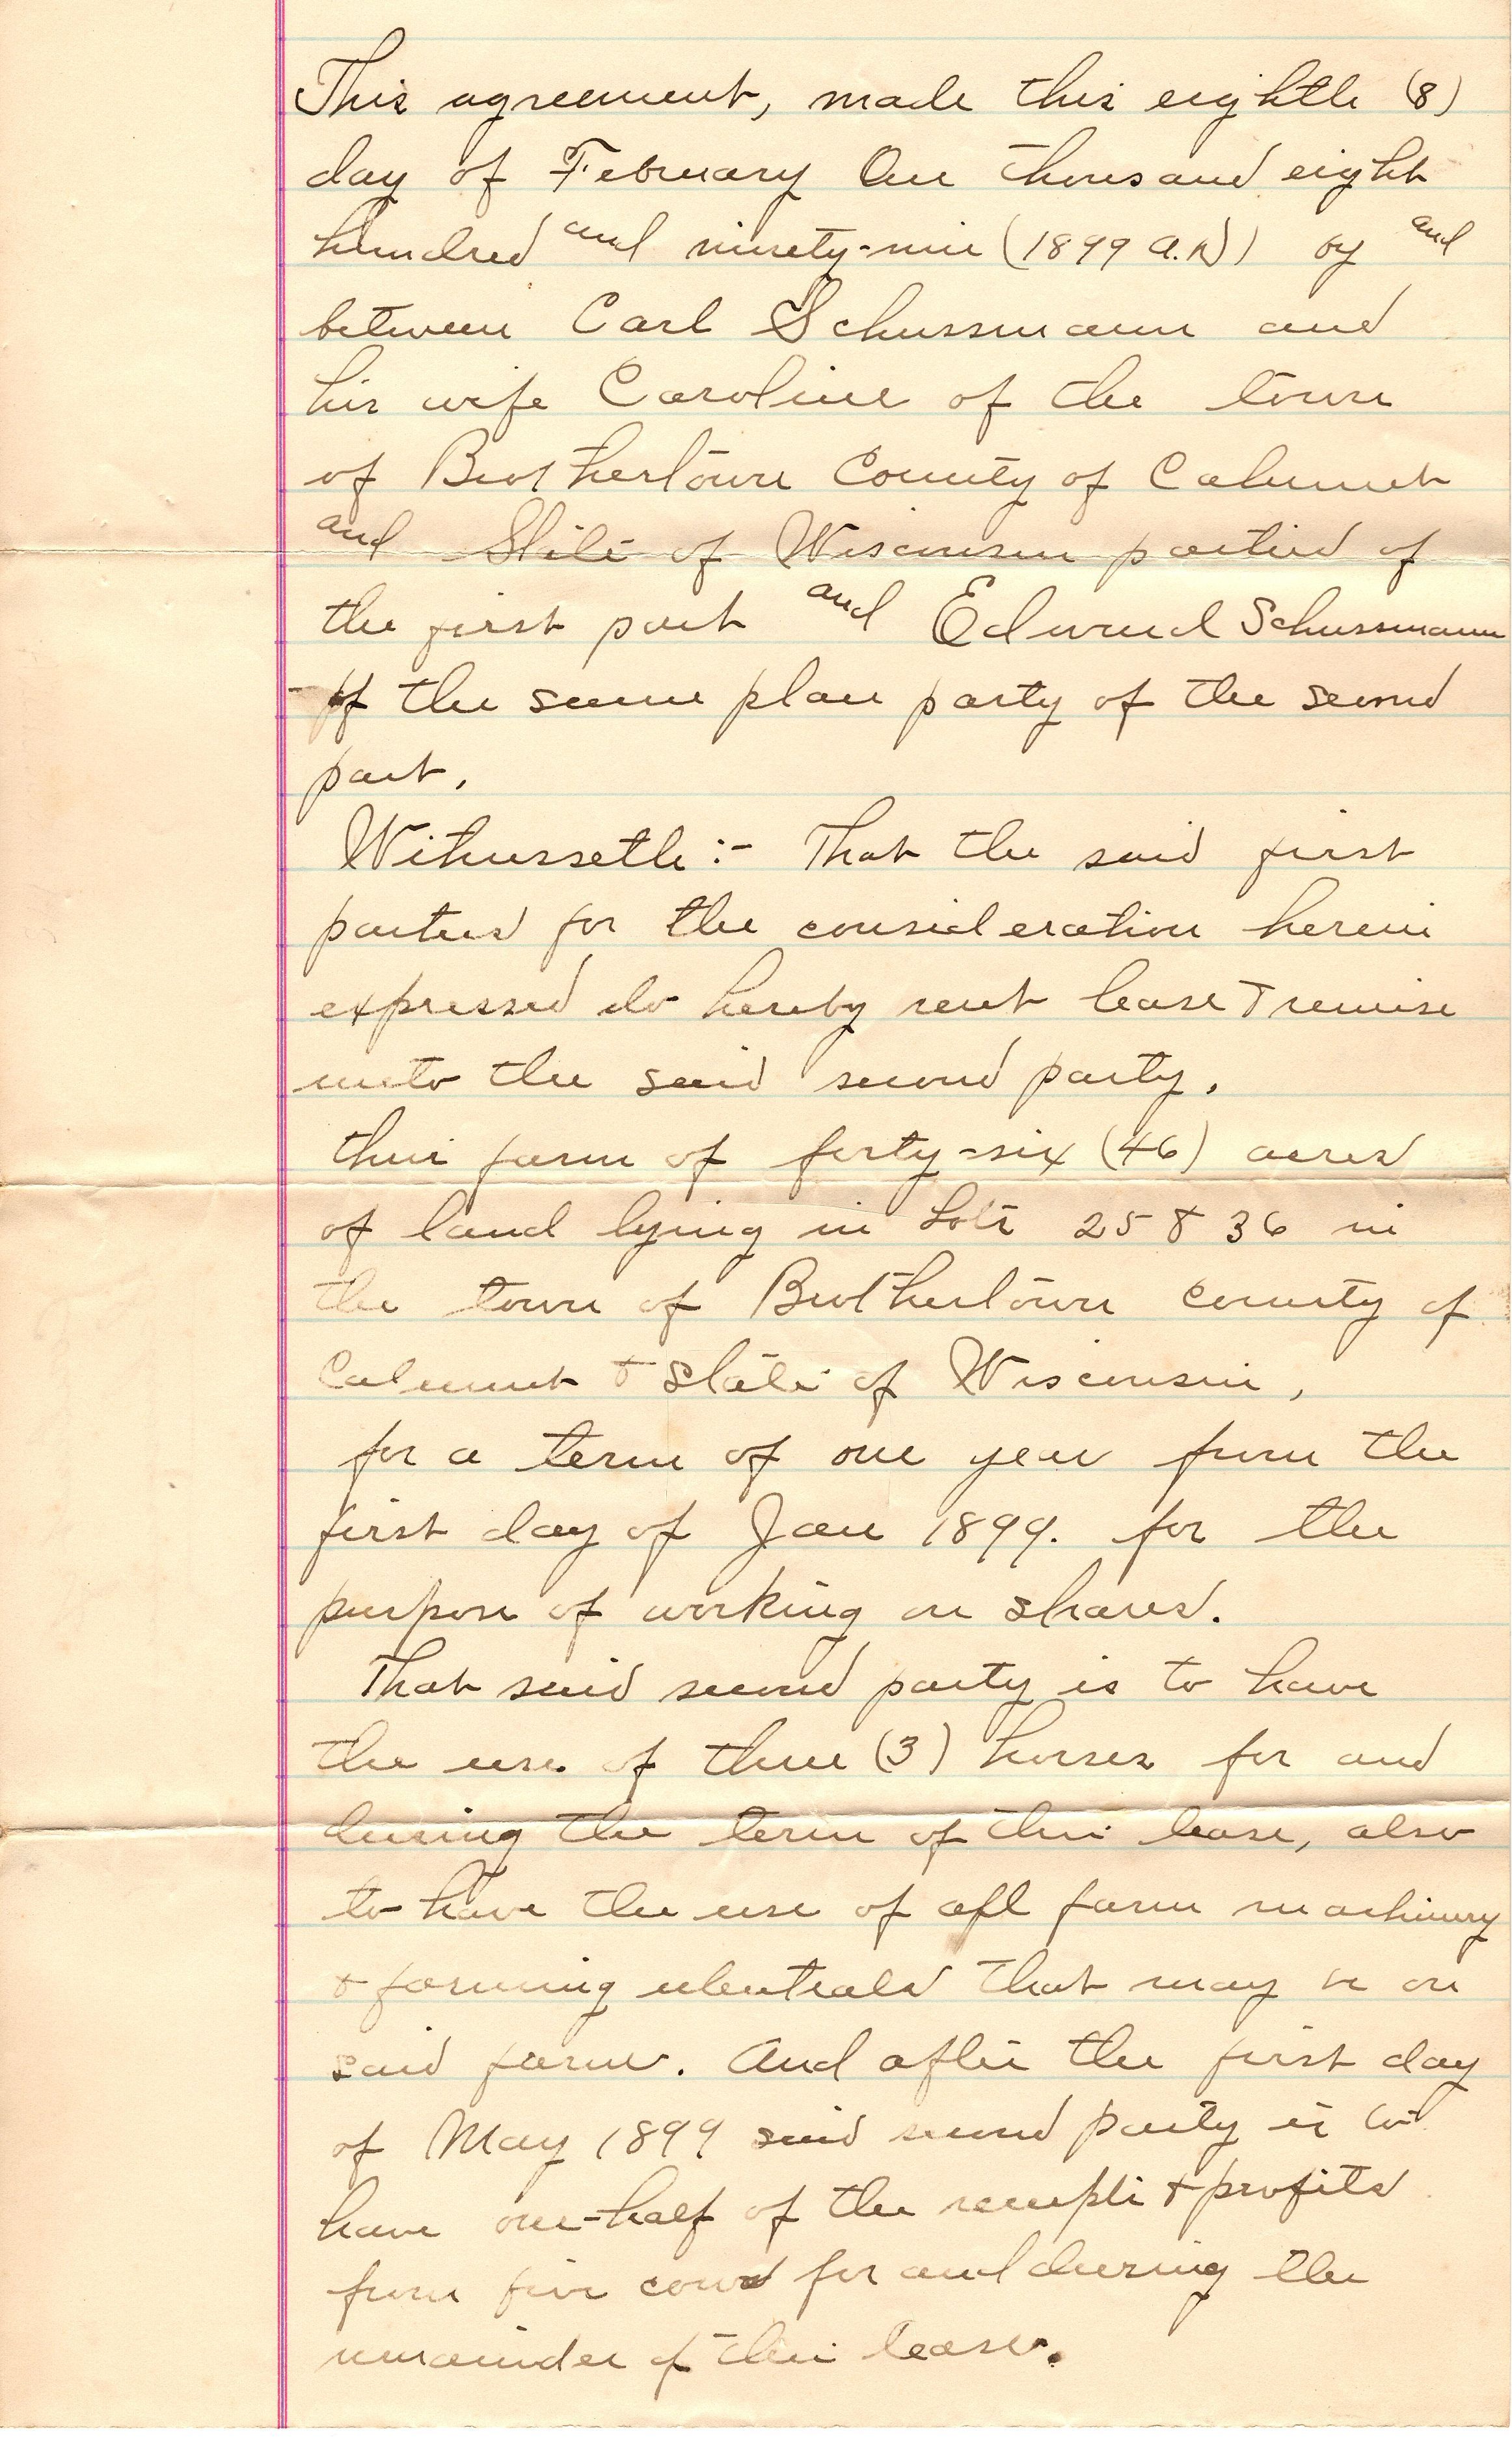 This agreement, made this eighth (8)
day of February One thousand eight
hundred and ninety-nine (1899 A.D) by and
between Carl Schussmann and
his wife Caroline of the town
of Brothertown County of Calumet
and State of Wisconsin parties of
the first part and Edward Schussmann
of the same place party of the second
part.
Witnesseth:- That the said first
parties for the consideration herein
expressed do hereby rent lease & remise
unto the said second party.
their farm of forty-six (46) acres
of land lying in Lots 25 & 36 in
the town of Brothertown county of
Calumet & State of Wisconsin,
for a term of one year from the
first day of Jan 1899. for the
purpose of working on shares.
That said second party is to have
the use of three (3) horses for and
during the term of this lease, also
to have the use of all farm machinery
& farming utentials that may be on
said farm. And after the first day
of May 1899 said second party is to
have one-half of the receipts & profits
from five cows for and during the
remainder of this lease.